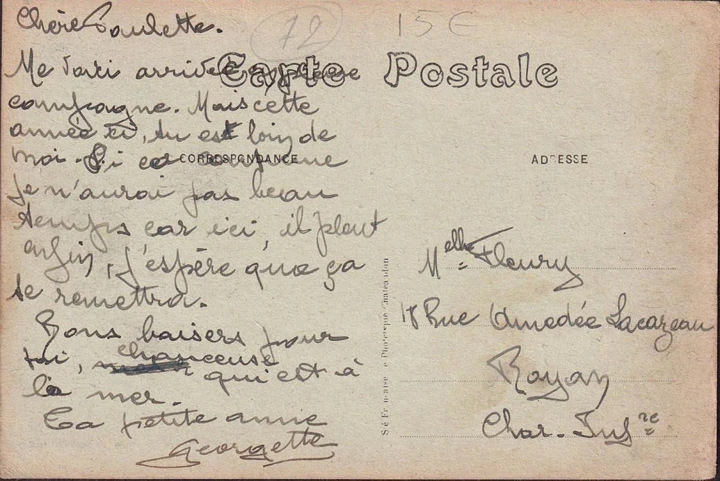 Chère Paulette.
72
15 €
Carte Postale
Me voici arrivée en pleine
campagne. Mais cette
année ci, tu est loin de
moi. Si ca continue
CORRESPONDANCE
ADRESSE
je n'aurai pas beau
temps car ici, il pleut
enfin, j'espère que ça
se remettra.
Bons baisers pour
toi, chanceuse qui est à
la mer.
Ta petite amie
Georgette
Melle Fleury
18 Rue Amedée Lacazeau
Royan
Char. Infre